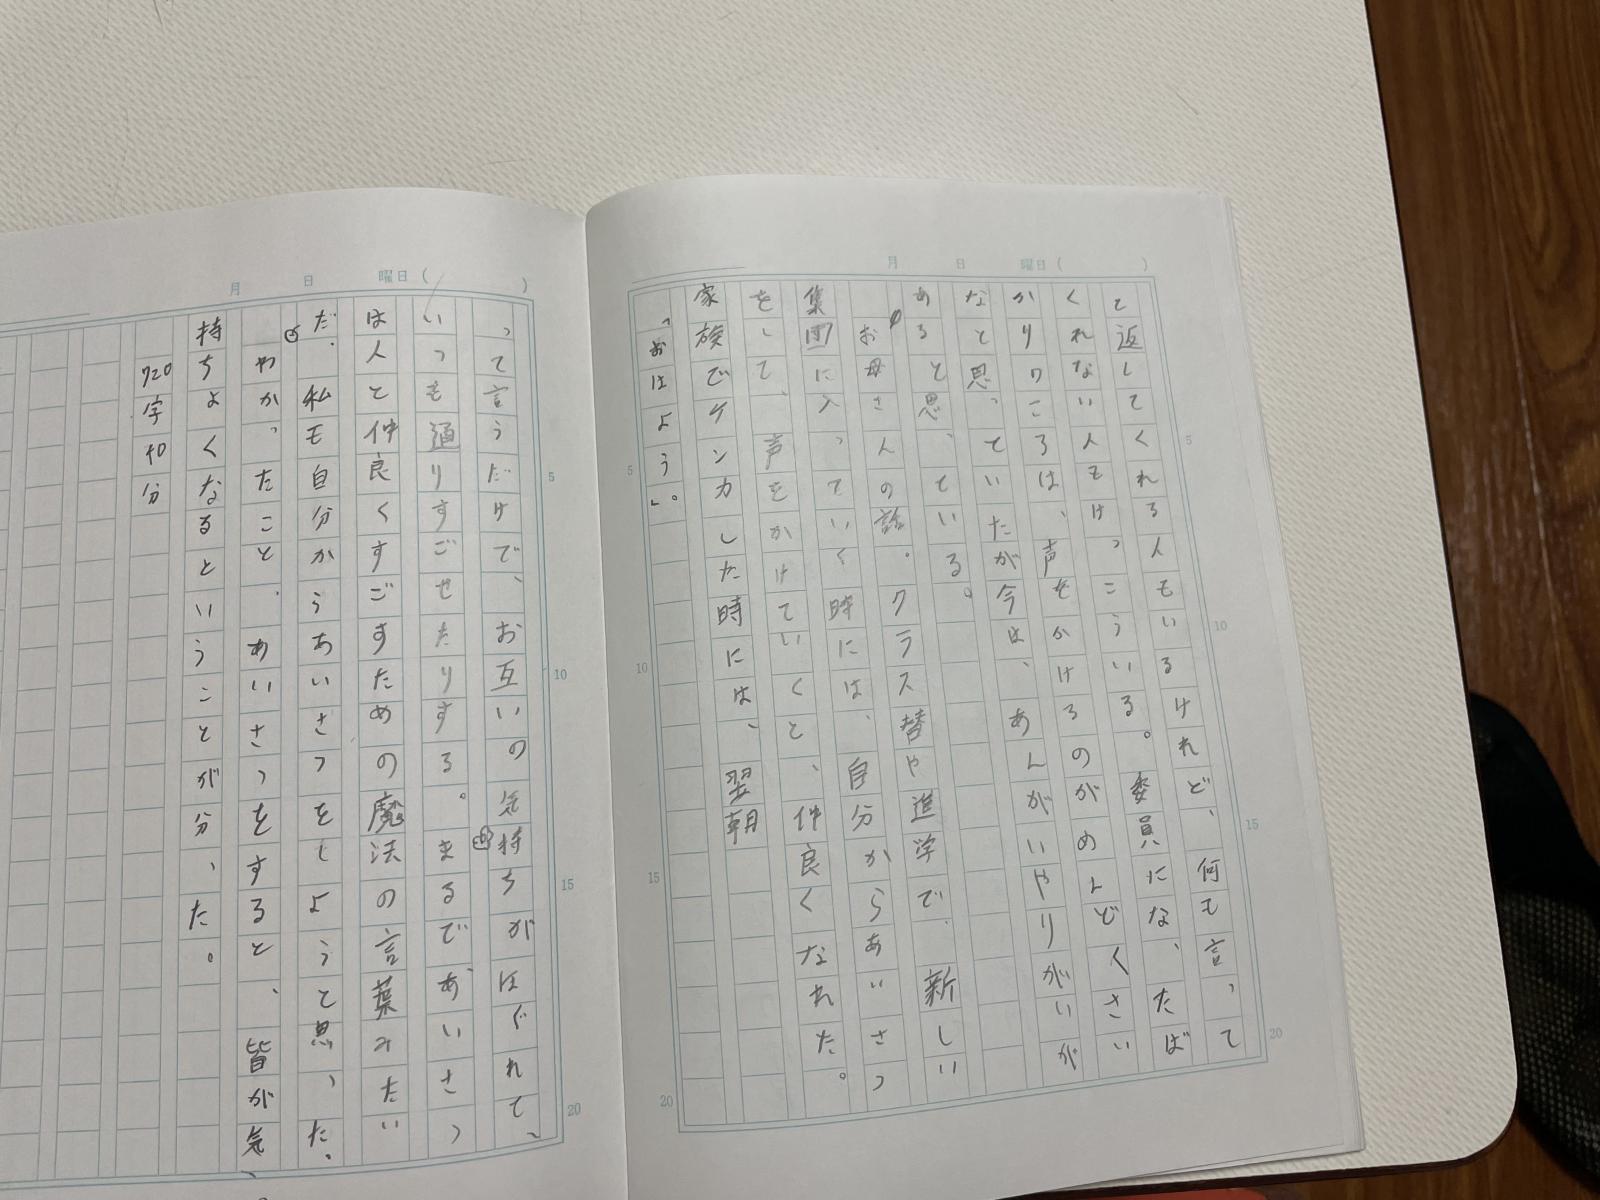 月 日 曜日（ ）
て返してくれる人もいるけれど、何も言って
くれない人もけっこういる。委員になったば
かりのころは、声をかけるのがめんどくさい
なと思っていたが今は、あんがいやりがいが
あると思っている。
お母さんの話。クラス替や進学で、新しい
集団に入っていく時には、自分からあいさつ
をして、声をかけていくと、仲良くなれた。
家族でケンカした時には、翌朝
「おはよう」。
5
10
15
20
5
10
15
20
月 日 曜日（ ）
って言うだけで、お互いの気持ちがほぐれて、
いつも通りすごせたりする。まるであいさつ
は人と仲良くすごすための魔法の言葉みたい
だ。私も自分からあいさつをしようと思った。
わかったこと、あいさつをすると、皆が気
持ちよくなるということが分った。
720字40分
5
10
15
20